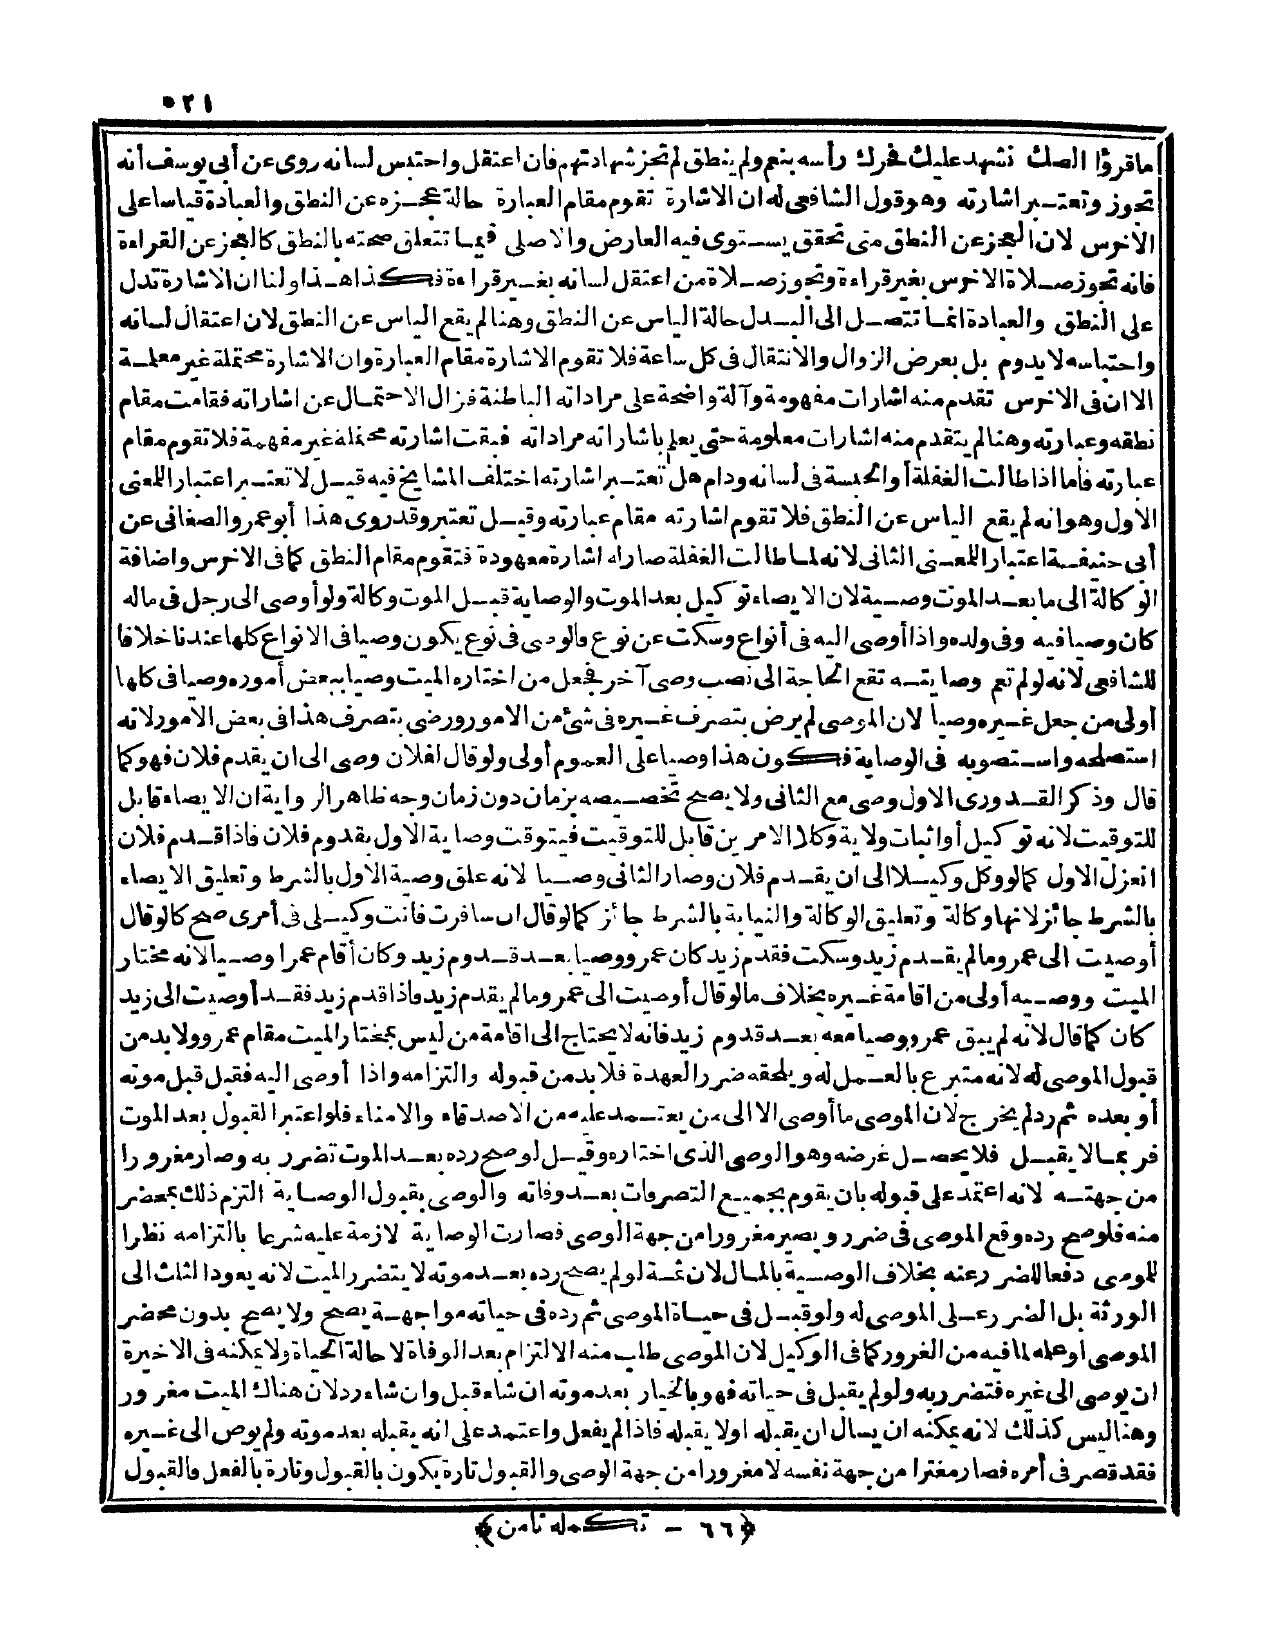 ٥٢١
ماقرؤا الصك نشهد عليك فحرك رأسه بنعم ولم ينطق لم تجز شهادتهم فان اعتقل واحتبس لسانه روى عن أبى يوسف أنه
تجوز وتعتبر اشارته وهو قول الشافعى له ان الاشارة تقوم مقام العبارة حالة عجزه عن النطق والعبادة قياسا على
الاخرس لان العجز عن النطق متى تحقق يستوى فيه العارض والاصلى فيما تتعلق صحته بالنطق كالعجز عن القراءة
فانه تجوز صلاة الاخرس بغير قراءة وتجوز صلاة من اعتقل لسانه بغير قراءة فكذا هذا ولنا ان الاشارة تدل
على النطق والعبادة انما تتصل الى البدل حالة الياس عن النطق وهنا لم يقع الياس عن النطق لان اعتقال لسانه
واحتباسه لا يدوم بل بعرض الزوال والانتقال فى كل ساعة فلا تقوم الاشارة مقام العبارة وان الاشارة محتملة غير معلمة
الا ان فى الاخرس تقدم منه اشارات مفهومة وآلة واضحة على مراداته الباطنة فزال الاحتمال عن اشاراته فقامت مقام
نطقه وعبارته وهنا لم يتقدم منه اشارات معلومة حتى يعلم باشاراته مراداته فبقت اشارته محتملة غير مفهمة فلا تقوم مقام
عبارته فأما اذا طالت الغفلة أو الحبسة فى لسانه ودام هل تعتبر اشارته اختلف المشايخ فيه قيل لا تعتبر اعتبار اللمعنى
الاول وهو انه لم يقع الياس عن النطق فلا تقوم اشارته مقام عبارته وقيل تعتبر وقد روى هذا أبو عمرو الصغانى عن
أبى حنيفة اعتبار اللمعنى الثانى لانه لما طالت الغفلة صار له اشارة معهودة فتقوم مقام النطق كما فى الاخرس واضافة
الوكالة الى ما بعد الموت وصية لان الايصاء توكيل بعد الموت والوصاية قبل الموت وكالة ولو أوصى الى رجل فى ماله
كان وصيا فيه وفى ولده واذا أوصى اليه فى أنواع وسكت عن نوع فالوصى فى نوع يكون وصيا فى الانواع كلها عندنا خلافا
للشافعى لانه لو لم تعم وصايته تقع الحاجة الى نصب وصى آخر فجعل من اختاره الميت وصيا ببعض أموره وصيا فى كلها
أولى من جعل غيره وصيا لان الموصى لم يرض بتصرف غيره فى شئ من الامور ورضى بتصرف هذا فى بعض الامور لانه
استصلحه واستصوبه فى الوصاية فكون هذا وصيا على العموم أولى ولو قال افلان وصى الى ان يقدم فلان فهو كما
قال وذكر القدورى الاول وصى مع الثانى ولا يصح تخصيصه بزمان دون زمان وجه ظاهر الرواية ان الايصاء قابل
للتوقيت لانه توكيل أو اثبات ولاية وكلا الامرين قابل للتوقيت فيتوقت وصاية الاول بقدوم فلان فاذا قدم فلان
انعزل الاول كما لو وكل وكيلا الى ان يقدم فلان وصار الثانى وصيا لانه علق وصية الاول بالشرط وتعليق الايصاء
بالشرط جائز لانها وكالة وتعليق الوكالة والنيابة بالشرط جائز كما لو قال ان سافرت فانت وكيلى فى أمرى صح كما لو قال
أوصيت الى عمرو ما لم يقدم زيد وسكت فقدم زيد كان عمرو وصيا بعد قدوم زيد وكان أقام عمرا وصيا لانه مختار
الميت ووصيه أولى من اقامة غيره بخلاف ما لو قال أوصيت الى عمرو ما لم يقدم زيد فاذا قدم زيد فقد أوصيت الى زيد
كان كما قال لانه لم يبق عمرو وصيا معه بعد قدوم زيد فانه لا يحتاج الى اقامة من ليس بمختار الميت مقام عمرو ولا بد من
قبول الموصى له لانه متبرع بالعمل له ويلحقه ضرر العهدة فلا بد من قبوله والتزامه واذا أوصى اليه فقبل قبل موته
أو بعده ثم رد لم يخرج لان الموصى ما أوصى الا الى من يعتمد عليه من الاصدقاء والامناء فلو اعتبرا القبول بعد الموت
فربما لا يقبل فلا يحصل غرضه وهو الوصى الذى اختاره وقيل لو صح رده بعد الموت تضرر به وصار مغرورا
من جهته لانه اعتمد على قبوله بان يقوم بجميع التصرفات بعد وفاته والوصى بقبول الوصاية التزم ذلك بمحضر
منه فلو صح رده وقع الموصى فى ضرر ويصير مغرورا من جهة الوصى فصارت الوصاية لازمة عليه شرعا بالتزامه نظرا
للموصى دفعا للضرر عنه بخلاف الوصية بالمال لان ثمة لو لم يصح رده بعد موته لا يتضرر الميت لانه يعود الثلث الى
الورثة بل الضرر على الموصى له ولو قبل فى حياة الموصى ثم رده فى حياته مواجهة يصح ولا يصح بدون محضر
الموصى أو علمه لما فيه من الغرور كما فى الوكيل لان الموصى طلب منه الالتزام بعد الوفاة لا حالة الحياة ولا يمكنه فى الاخيرة
ان يوصى الى غيره فتضرر به ولو لم يقبل فى حياته فهو بالخيار بعد موته ان شاء قبل وان شاء رد لان هناك الميت مغرور
وهنا ليس كذلك لانه يمكنه ان يسال ان يقبله اولا يقبله فاذا لم يفعل واعتمد على انه يقبله بعد موته ولم يوص الى غيره
فقد قصر فى أمره فصار مغترا من جهة نفسه لا مغرورا من جهة الوصى والقبول تارة يكون بالقبول وتارة بالفعل فالقبول
﴿٦٦ - تكمله ثامن﴾